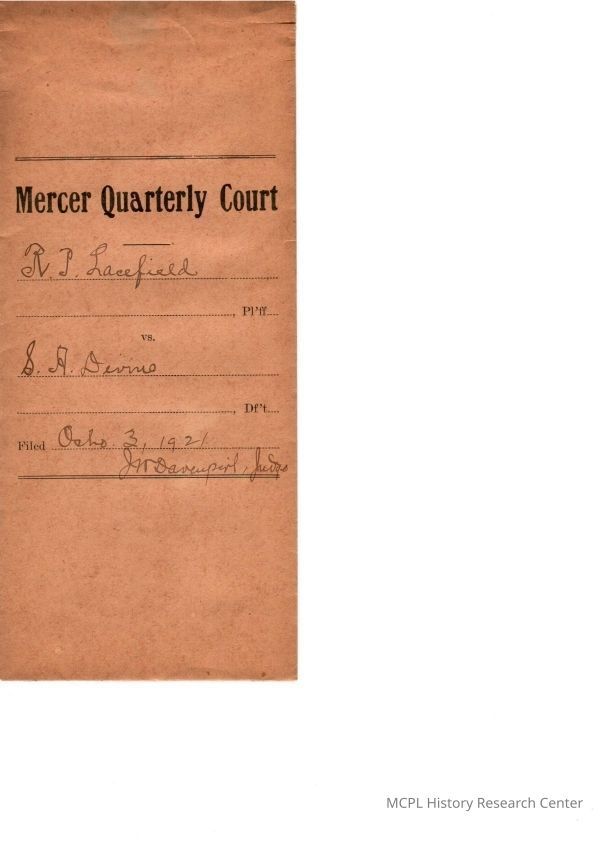 Mercer Quarterly Court
R. P. Lacefield
, Pl'ff.
vs.
S. A. Devine
, Df't.
Filed Octo. 3, 1921
JW Davenport, Judge
MCPL History Research Center